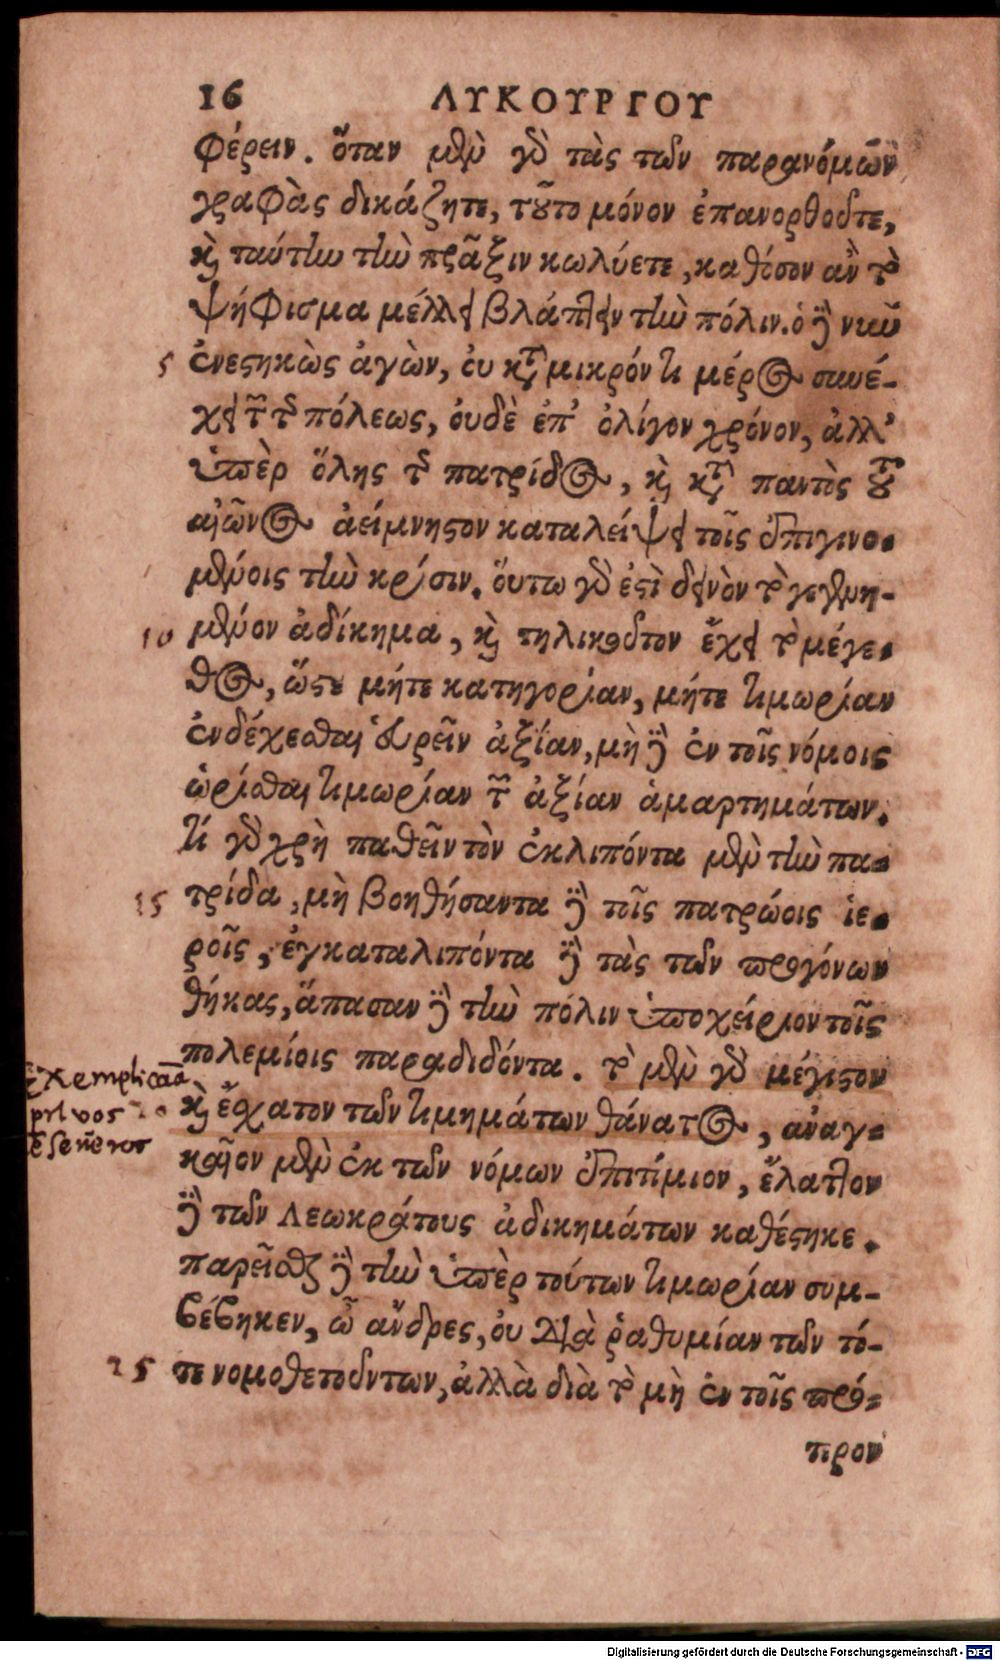 16 ΛΥΚΟΥΡΓΟΥ
φέρειν. ὅταν μὲν γὰρ τὰς τῶν παρανόμων
γραφὰς δικάζητε, τοῦτο μόνον ἐπανορθοῦτε,
καὶ ταύτην τὴν πρᾶξιν κωλύετε, καθόσον ἂν τὸ
ψήφισμα μέλλει βλάπτειν τὴν πόλιν. ὁ δὲ νῦν
5 ἐνεστηκὼς ἀγὼν, οὐ κατὰ μικρόν τι μέρος συνέ-
χει τῶν τῆς πόλεως, οὐδὲ ἐπ' ὀλίγον χρόνον, ἀλλ'
ὑπὲρ ὅλης τῆς πατρίδος, καὶ κατὰ παντὸς τοῦ
αἰῶνος ἀείμνηστον καταλείψει τοῖς ἐπιγινο-
μένοις τὴν κρίσιν. οὕτω γὰρ ἐστὶ δεινὸν τὸ γεγενη-
10 μένον ἀδίκημα, καὶ τηλικοῦτον ἔχει τὸ μέγε-
θος, ὥστε μήτε κατηγορίαν, μήτε τιμωρίαν
ἐνδέχεσθαι εὑρεῖν ἀξίαν, μὴ δὲ ἐν τοῖς νόμοις
ὡρίσθαι τιμωρίαν τῶν ἀξίαν ἁμαρτημάτων.
τί γὰρ χρὴ παθεῖν τὸν ἐκλιπόντα μὲν τὴν πα-
15 τρίδα, μὴ βοηθήσαντα δὲ τοῖς πατρῴοις ἱε-
ροῖς, ἐγκαταλιπόντα δὲ τὰς τῶν προγόνων
θήκας, ἅπασαν δὲ τὴν πόλιν ὑποχείριον τοῖς
πολεμίοις παραδιδόντα. τὸ μὲν γὰρ μέγιστον
καὶ ἔσχατον τῶν τιμημάτων θάνατος, ἀναγ-
καῖον μὲν ἐκ τῶν νόμων ἐπιτίμιον, ἔλαττον
δὲ τῶν Λεωκράτους ἀδικημάτων καθέστηκε.
παρεῖσθαι δὲ τὴν ὑπὲρ τούτων τιμωρίαν συμ-
βέβηκεν, ὦ ἄνδρες, οὐ διὰ ῥαθυμίαν τῶν τό-
25 τε νομοθετούντων, ἀλλὰ διὰ τὸ μὴ ἐν τοῖς πρό-
τερον
Digitalisierung gefördert durch die Deutsche Forschungsgemeinschaft - DFG